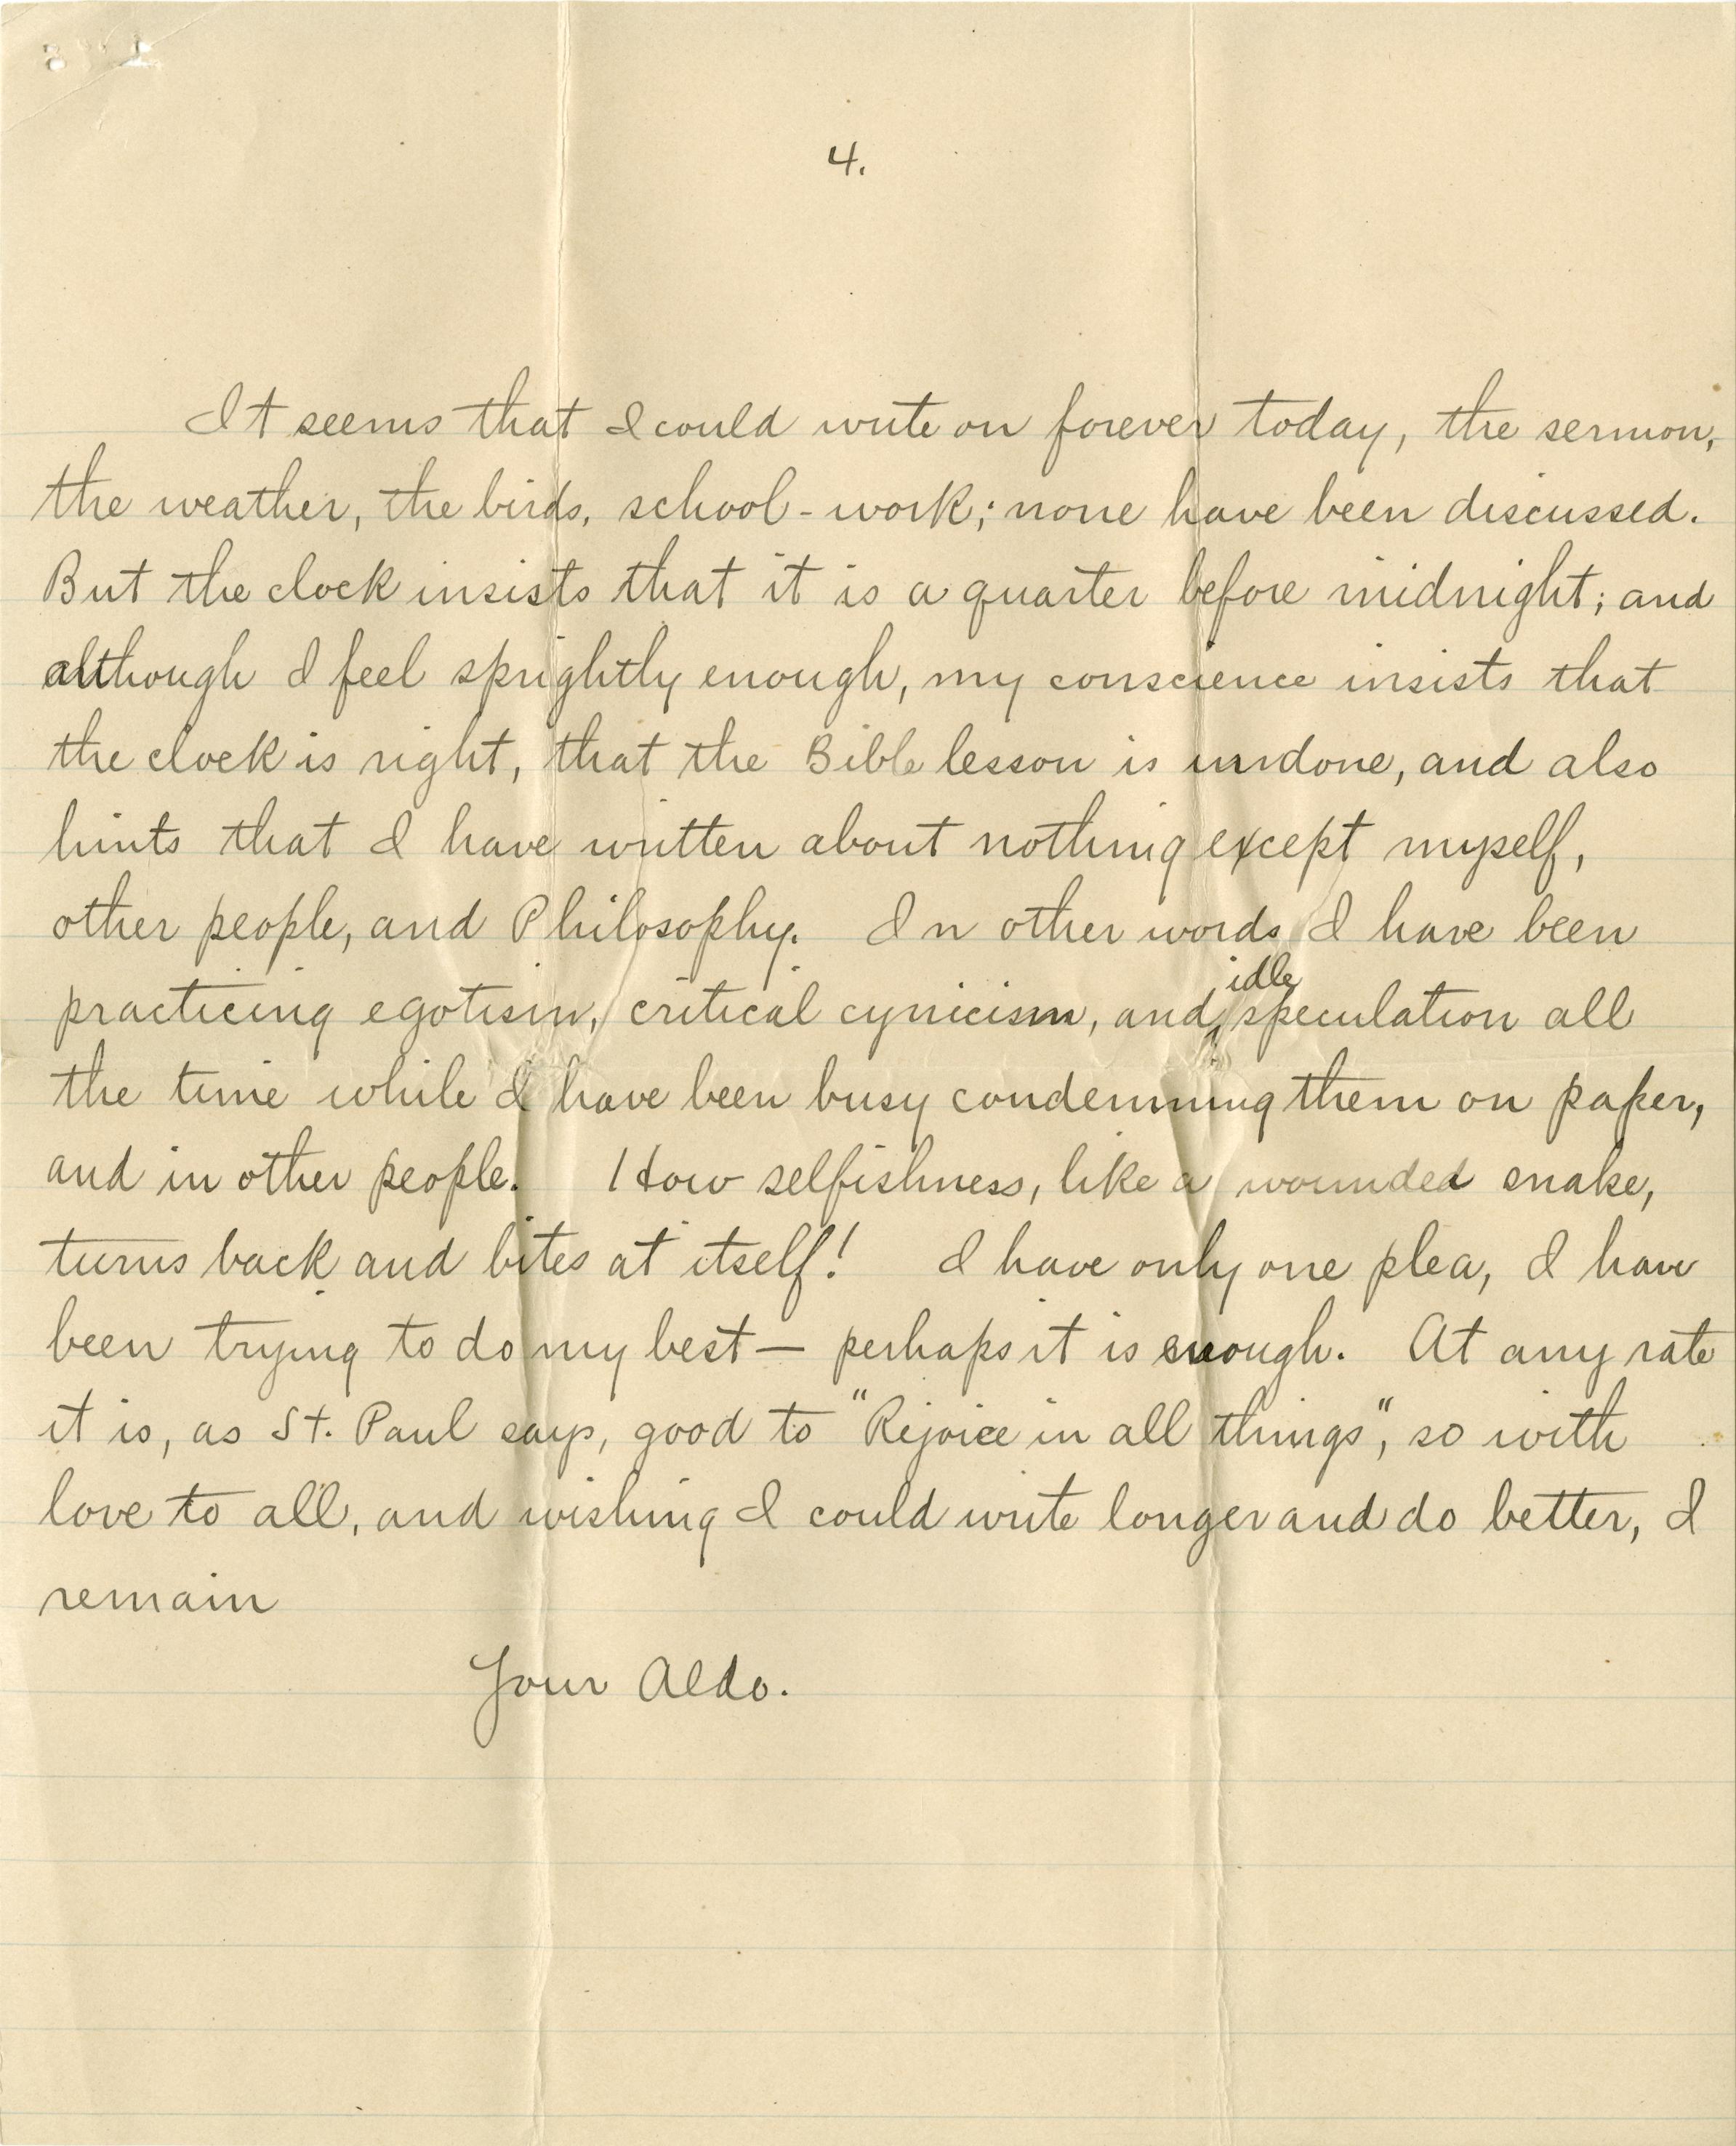 4.
It seems that I could write on forever today, the sermon,
the weather, the birds, school-work; none have been discussed.
But the clock insists that it is a quarter before midnight; and
although I feel sprightly enough, my conscience insists that
the clock is right, that the Bible lesson is undone, and also
hints that I have written about nothing except myself,
other people, and Philosophy. In other words I have been
practicing egotism, critical cynicism, and idle speculation all
the time while I have been busy condemning them on paper,
and in other people. How selfishness, like a wounded snake,
turns back and bites at itself! I have only one plea, I have
been trying to do my best — perhaps it is enough. At any rate
it is, as St. Paul says, good to "Rejoice in all things", so with
love to all, and wishing I could write longer and do better, I
remain
Your Aldo.